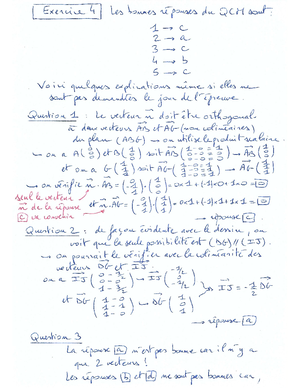 Exercice 4 Les bonnes réponses du QCM sont :
1 → c
2 → a
3 → c
4 → b
5 → c
Voici quelques explications même si elles ne
sont pas demandées le jour de l'épreuve.
Question 1 : Le vecteur n doit être orthogonal
à deux vecteurs AB et AG (non colinéaires)
du plan (ABG) → on utilise le produit scalaire
→ on a A(0 0 0) et B(1 0 0) soit AB
→ on a G(1 1 1) soit AG
→ on vérifie n . AB = = 0
seul le vecteur
n de la réponse
c va convenir
et n . AG = = 0
→ réponse c.
Question 2 : de façon évidente avec le dessin, on
voit que la seule possibilité est (DG) // (IJ).
→ on pourrait le vérifier avec la colinéarité des
vecteurs DG et IJ.
on a IJ
et DG IJ = -1/2 DG
→ réponse a
Question 3
La réponse a n'est pas bonne car il n'y a
que 2 vecteurs !
Les réponses b et d ne sont pas bonnes car,